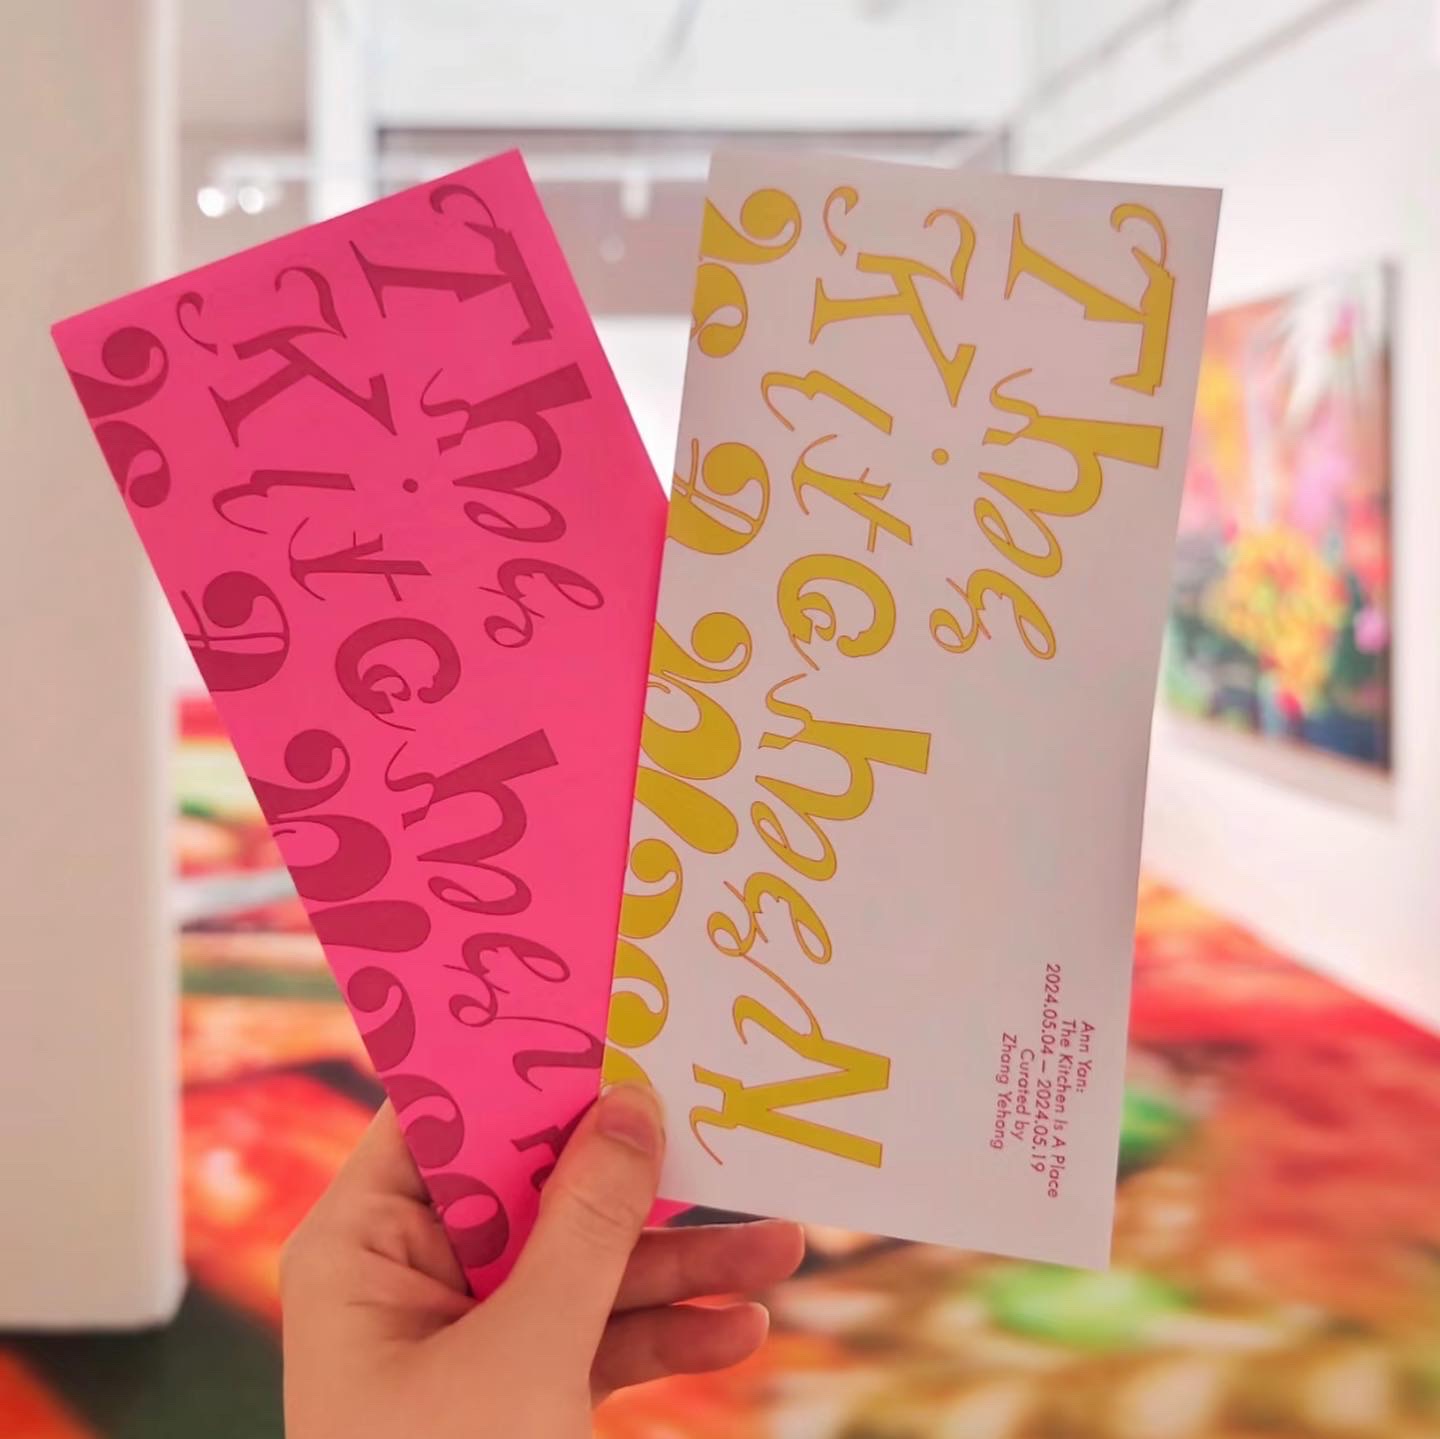 The
KitcheN
Is A Place
The
KitcheN
Is A Place
Ann Yan:
The Kitchen Is A Place
2024.05.04 – 2024.05.19
Curated by
Zhang Yehong